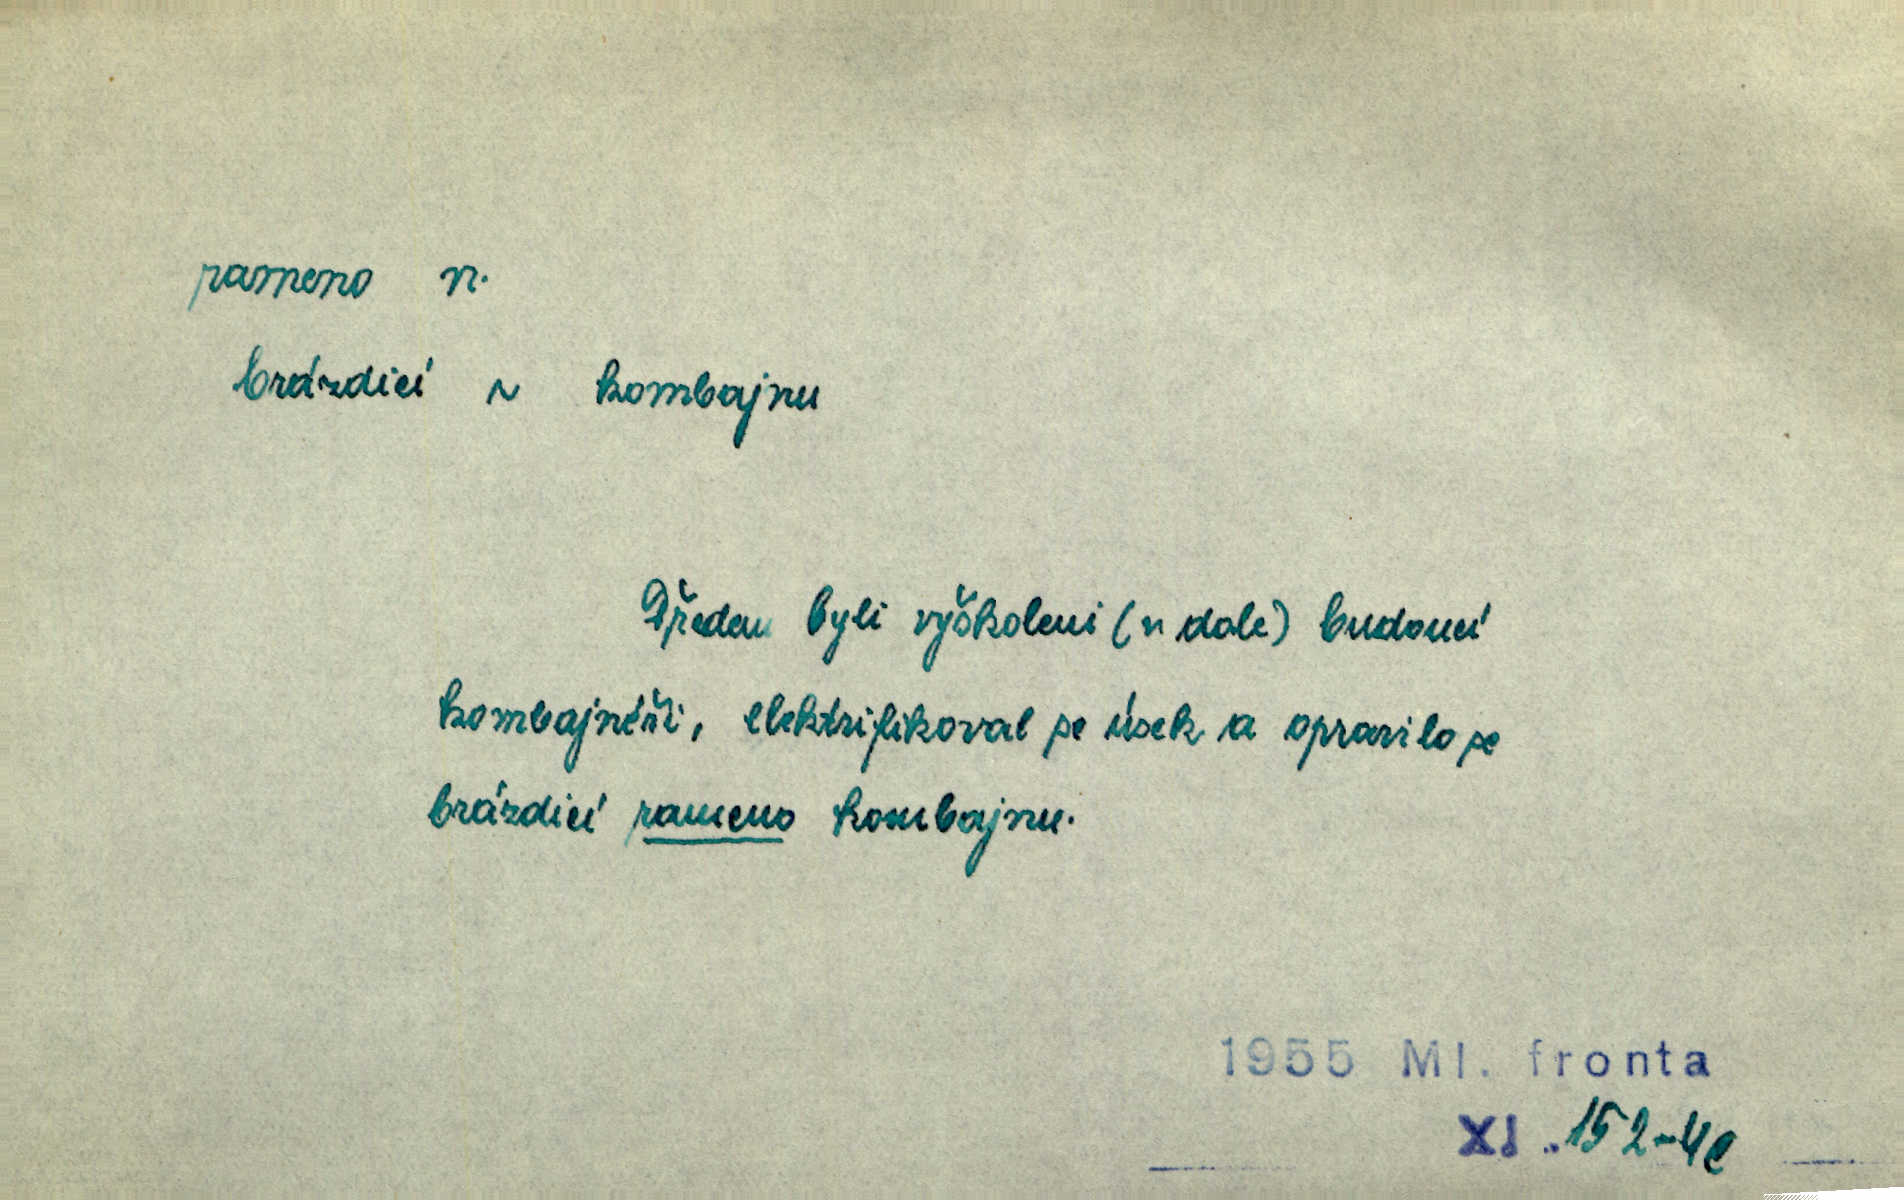 rameno n.
brázdicí ~ kombajnu
Předem byli vyškoleni (v dole) budoucí
kombajnéři, elektrifikoval se úsek a opravilo se
brázdicí rameno kombajnu.
1955 Ml. fronta
XI. 152-4e